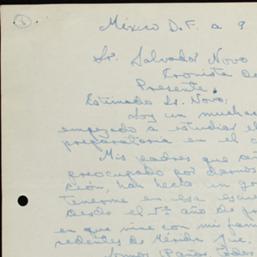 1
México D.F. a 9
Sr. Salvador Novo
Cronista de
Presente.
Estimado Sr. Novo,
Soy un muchac
empezado a estudiar el
preparatoria en el c
Mis padres que
preocupado por darnos
ción, han hecho un
tenerme en esa escue
desde el 5º año de
en que vine con mi fami
redentes de Mérida Yuc.
Somos